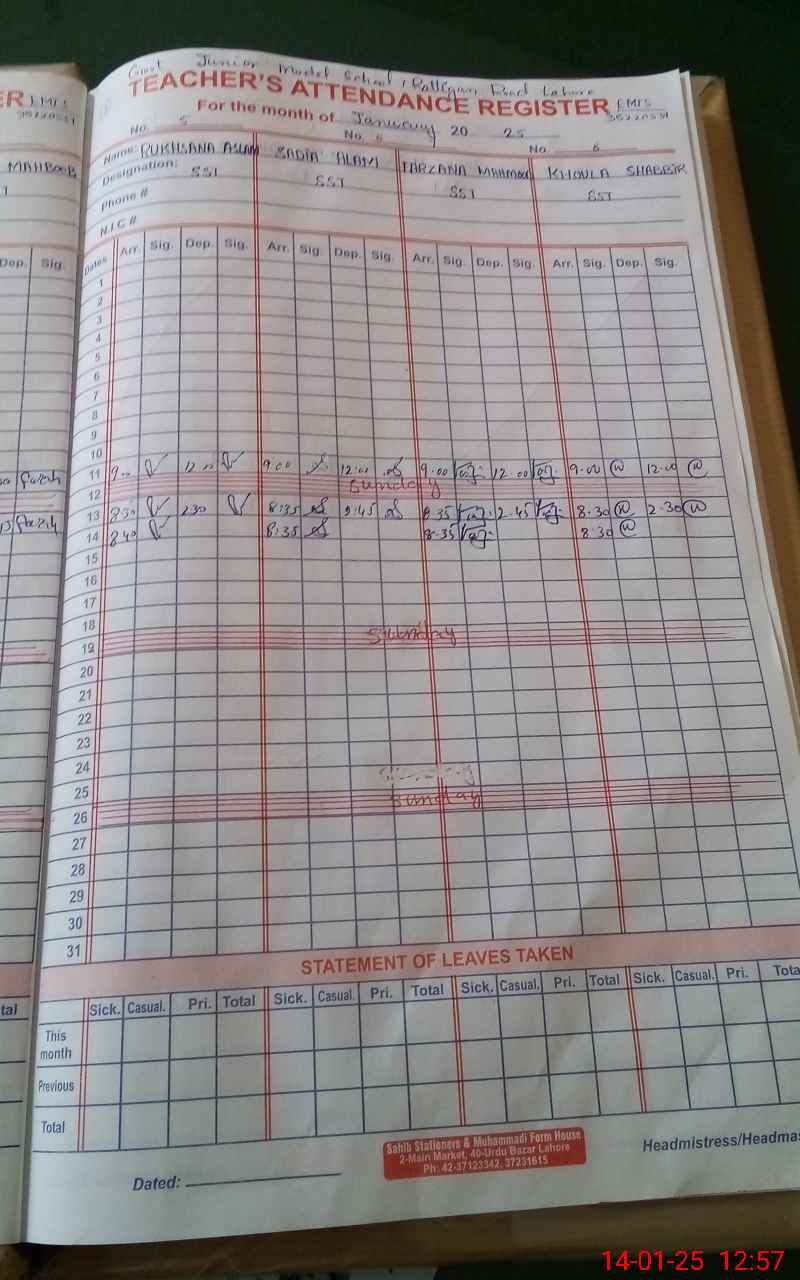 Govt Junior Model School, Rattigan Road Lahore
ER EMIS
TEACHER'S ATTENDANCE REGISTER EMIS
35220551
For the month of January 20 25
No. 5 No. 6 No. 8
MAHBOOB
Name: RUKHSANA ASLAM SADIA ALAM FARZANA MAHMOOD KHOULA SHABBIR
Designation: SST SST SST SST
Phone #
N.I.C #
Dep. Sig.
Dates Arr. Sig. Dep. Sig. Arr. Sig. Dep. Sig. Arr. Sig. Dep. Sig. Arr. Sig. Dep. Sig.
1
2
3
4
5
6
7
8
9
10
11 9.00 12.00 9.00 12.00 9.00 12.00 9.00 12.00
12 Sunday
13 8:30 2:30 8:35 2:45 8.35 2.45 8.30 2.30
14 8:40 8:35 8.35 8:30
15
16
17
18
19 Sunday
20
21
22
23
24
25
26 Sunday
27
28
29
30
31
STATEMENT OF LEAVES TAKEN
tal
Sick. Casual. Pri. Total Sick. Casual. Pri. Total Sick. Casual. Pri. Total Sick. Casual. Pri. Tota
This
month
Previous
Total
Sahib Stationers & Muhammadi Form House
2-Main Market, 40-Urdu Bazar Lahore
Ph: 42-37123342, 37231615
Headmistress/Headmas
Dated:
14-01-25 12:57